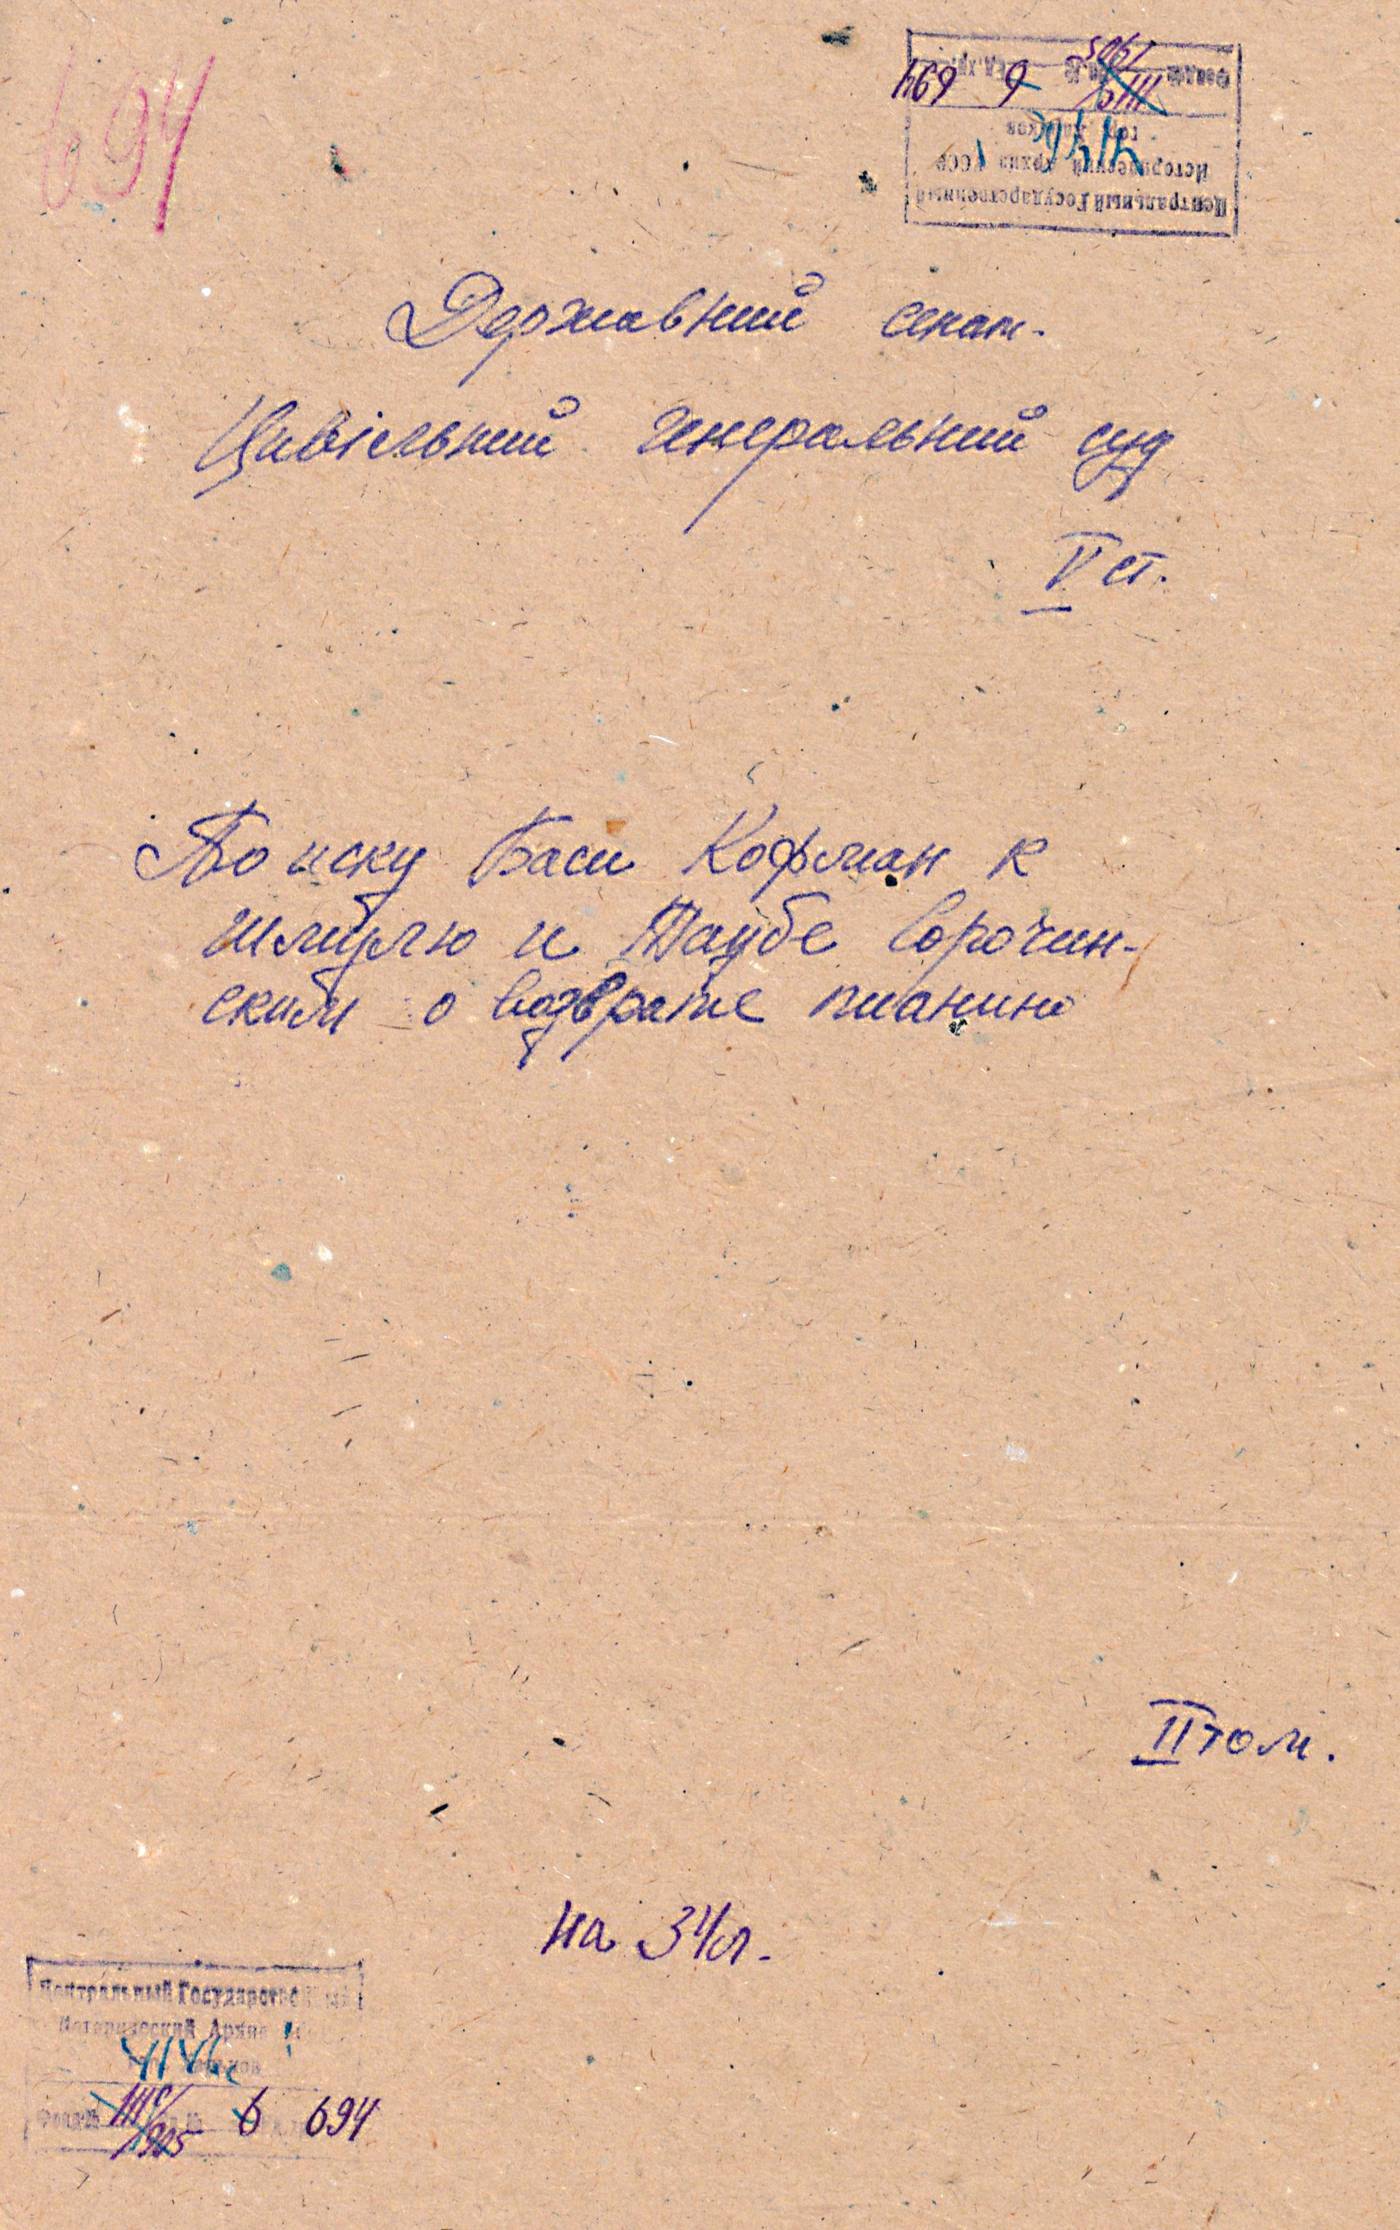 694
Центральный Государственный
Исторический Архив УССР
гор. Харьков
6 694
Державний сенат.
Цивільний генеральний суд
V ст.
По иску Баси Кофман к
Шмулю и Таубе Сорочин-
ским о возврате пианино
II том.
на 34 л.
Центральный Государственный
Исторический Архив
гор. Харьков
Фонд № 6 694